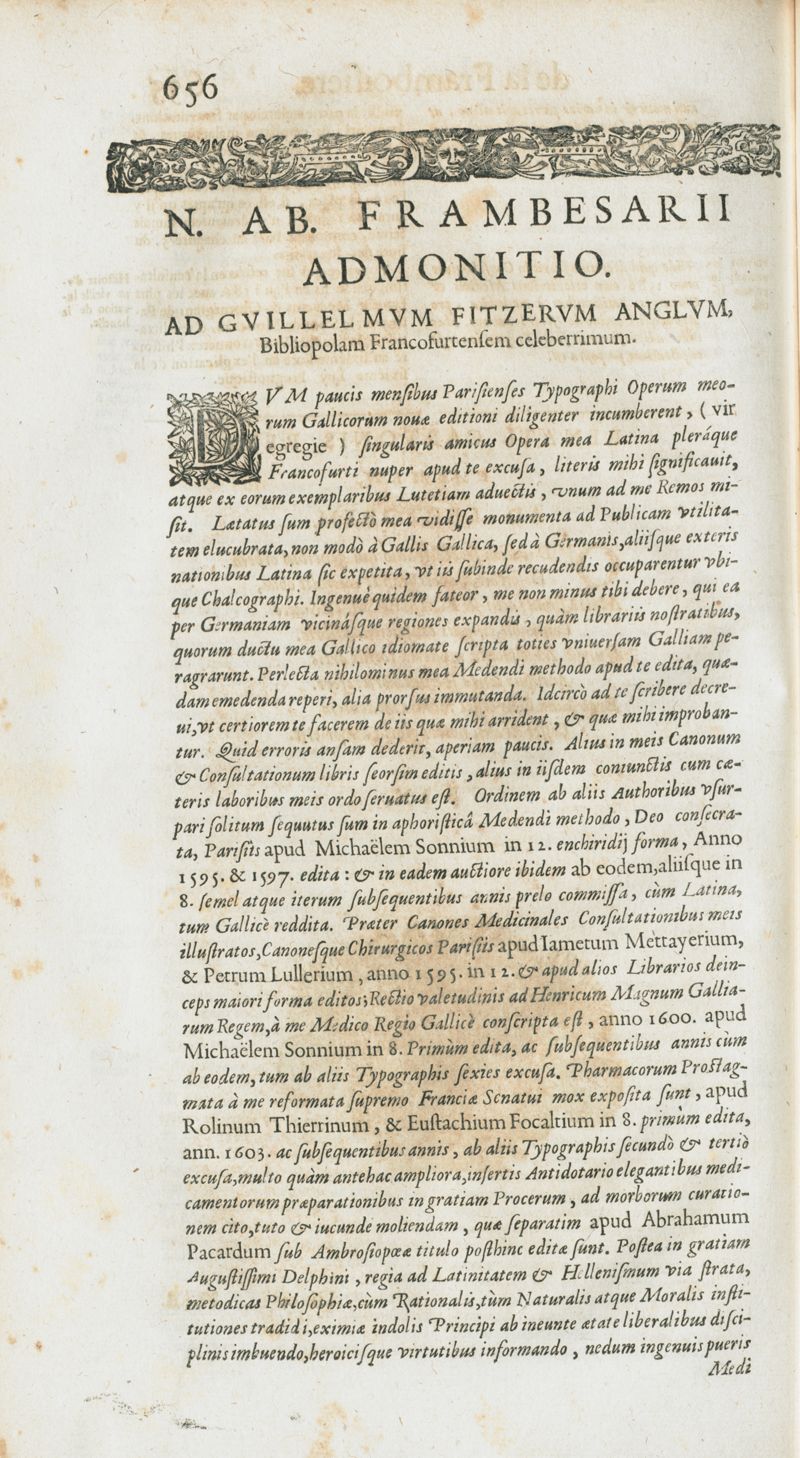 656
N. AB. FRAMBESARII
ADMONITIO.
AD GVILLELMVM FITZERVM ANGLVM,
Bibliopolam Francofurtensem celeberrimum.
DVM paucis mensibus Parisienses Typographi Operum meo-
rum Gallicorum nouæ editioni diligenter incumberent, ( vir
egregie ) singularis amicus Opera mea Latina pleráque
Francofurti nuper apud te excusa, literis mihi significauit,
atque ex eorum exemplaribus Lutetiam aduectis, vnum ad me Remos mi-
sit. Lætatus sum profectò mea vidisse monumenta ad Publicam vtilita-
tem elucubrata, non modò à Gallis Gallica, sed à Germanis, aliisque exteris
nationibus Latina sic expetita, vt iis subinde recudendis occuparentur vbi-
que Chalcographi. Ingenuè quidem fateor, me non minus tibi debere, qui ea
per Germaniam vicinásque regiones expandis, quàm librariis nostratibus,
quorum ductu mea Gallico idiomate scripta toties vniuersam Galliam pe-
ragrarunt. Perlecta nihilominus mea Medendi methodo apud te edita, quæ-
dam emedenda reperi, alia prorsus immutanda. Idcirco ad te scribere decre-
ui, vt certiorem te facerem de iis quæ mihi arrident, & quæ mihi improban-
tur. Quid erroris ansam dederit, aperiam paucis. Alius in meis Canonum
& Consultationum libris seorsim editis, alius in iisdem coniunctis cum cæ-
teris laboribus meis ordo seruatus est. Ordinem ab aliis Authoribus vsur-
pari solitum sequutus sum in aphoristicâ Medendi methodo, Deo consecra-
ta, Parisiis apud Michaëlem Sonnium in 12. enchiridij forma, Anno
1595. & 1597. edita: & in eadem auctiore ibidem ab eodem, aliisque in
8. semel atque iterum subsequentibus annis prelo commissa, cùm Latina,
tum Gallicè reddita. Præter Canones Medicinales Consultationibus meis
illustratos, Canonesque Chirurgicos Parisiis apud Iametum Mettayerium,
& Petrum Lullerium, anno 1595. in 12. & apud alios Librarios dein-
ceps maiori forma editos; Rectio valetudinis ad Henricum Magnum Gallia-
rum Regem, à me Medico Regio Gallicè conscripta est, anno 1600. apud
Michaëlem Sonnium in 8. Primùm edita, ac subsequentibus annis cùm
ab eodem, tum ab aliis Typographis sexies excusa. Pharmacorum Prostag-
mata à me reformata supremo Franciæ Senatui mox exposita sunt, apud
Rolinum Thierrinum, & Eustachium Focaltium in 8. primùm edita,
ann. 1603. ac subsequentibus annis, ab aliis Typographis secundò & tertiò
excusa, multo quàm antehac ampliora, insertis Antidotario elegantibus medi-
camentorum præparationibus in gratiam Procerum, ad morborum curatio-
nem cito, tuto & iucunde moliendam, quæ separatim apud Abrahamum
Pacardum sub Ambrosiopææ titulo posthinc editæ sunt. Postea in gratiam
Augustissimi Delphini, regia ad Latinitatem & Hellenismum via strata,
metodicas Philosophiæ, cùm Rationalis, tùm Naturalis atque Moralis insti-
tutiones tradidi, eximiæ indolis Principi ab ineunte ætate liberalibus disci-
plinis imbuendo, heroicisque virtutibus informando, nedum ingenuis pueris
Medi